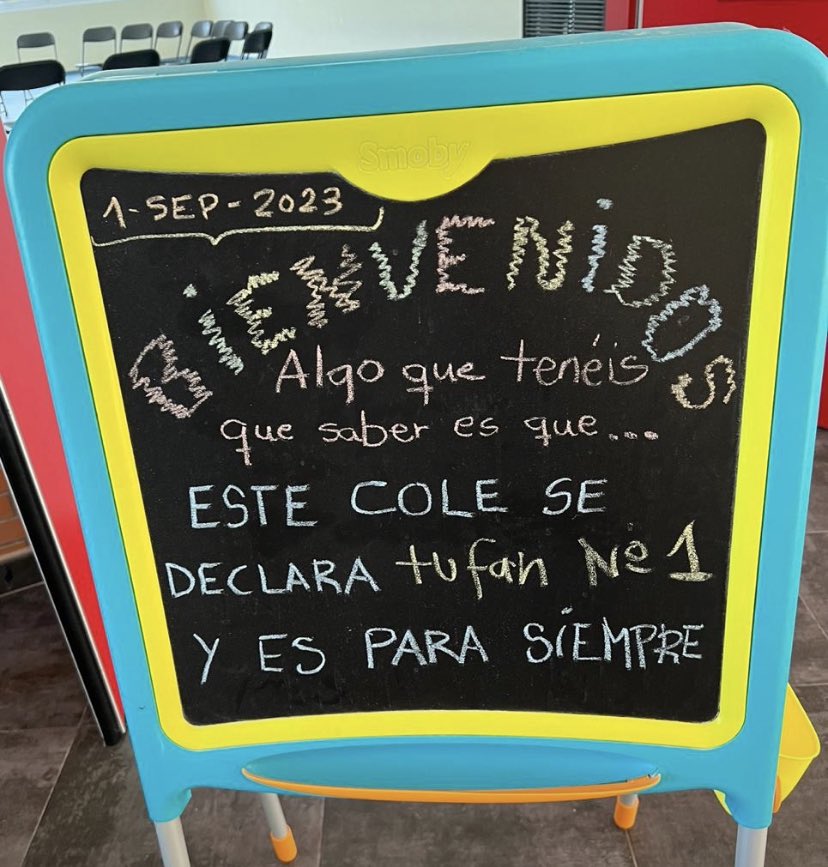 Smoby
1-SEP-2023
BiENVENiDOS
Algo que tenéis
que saber es que...
ESTE COLE SE
DECLARA tu fan Nº 1
Y ES PARA SiEMPRE